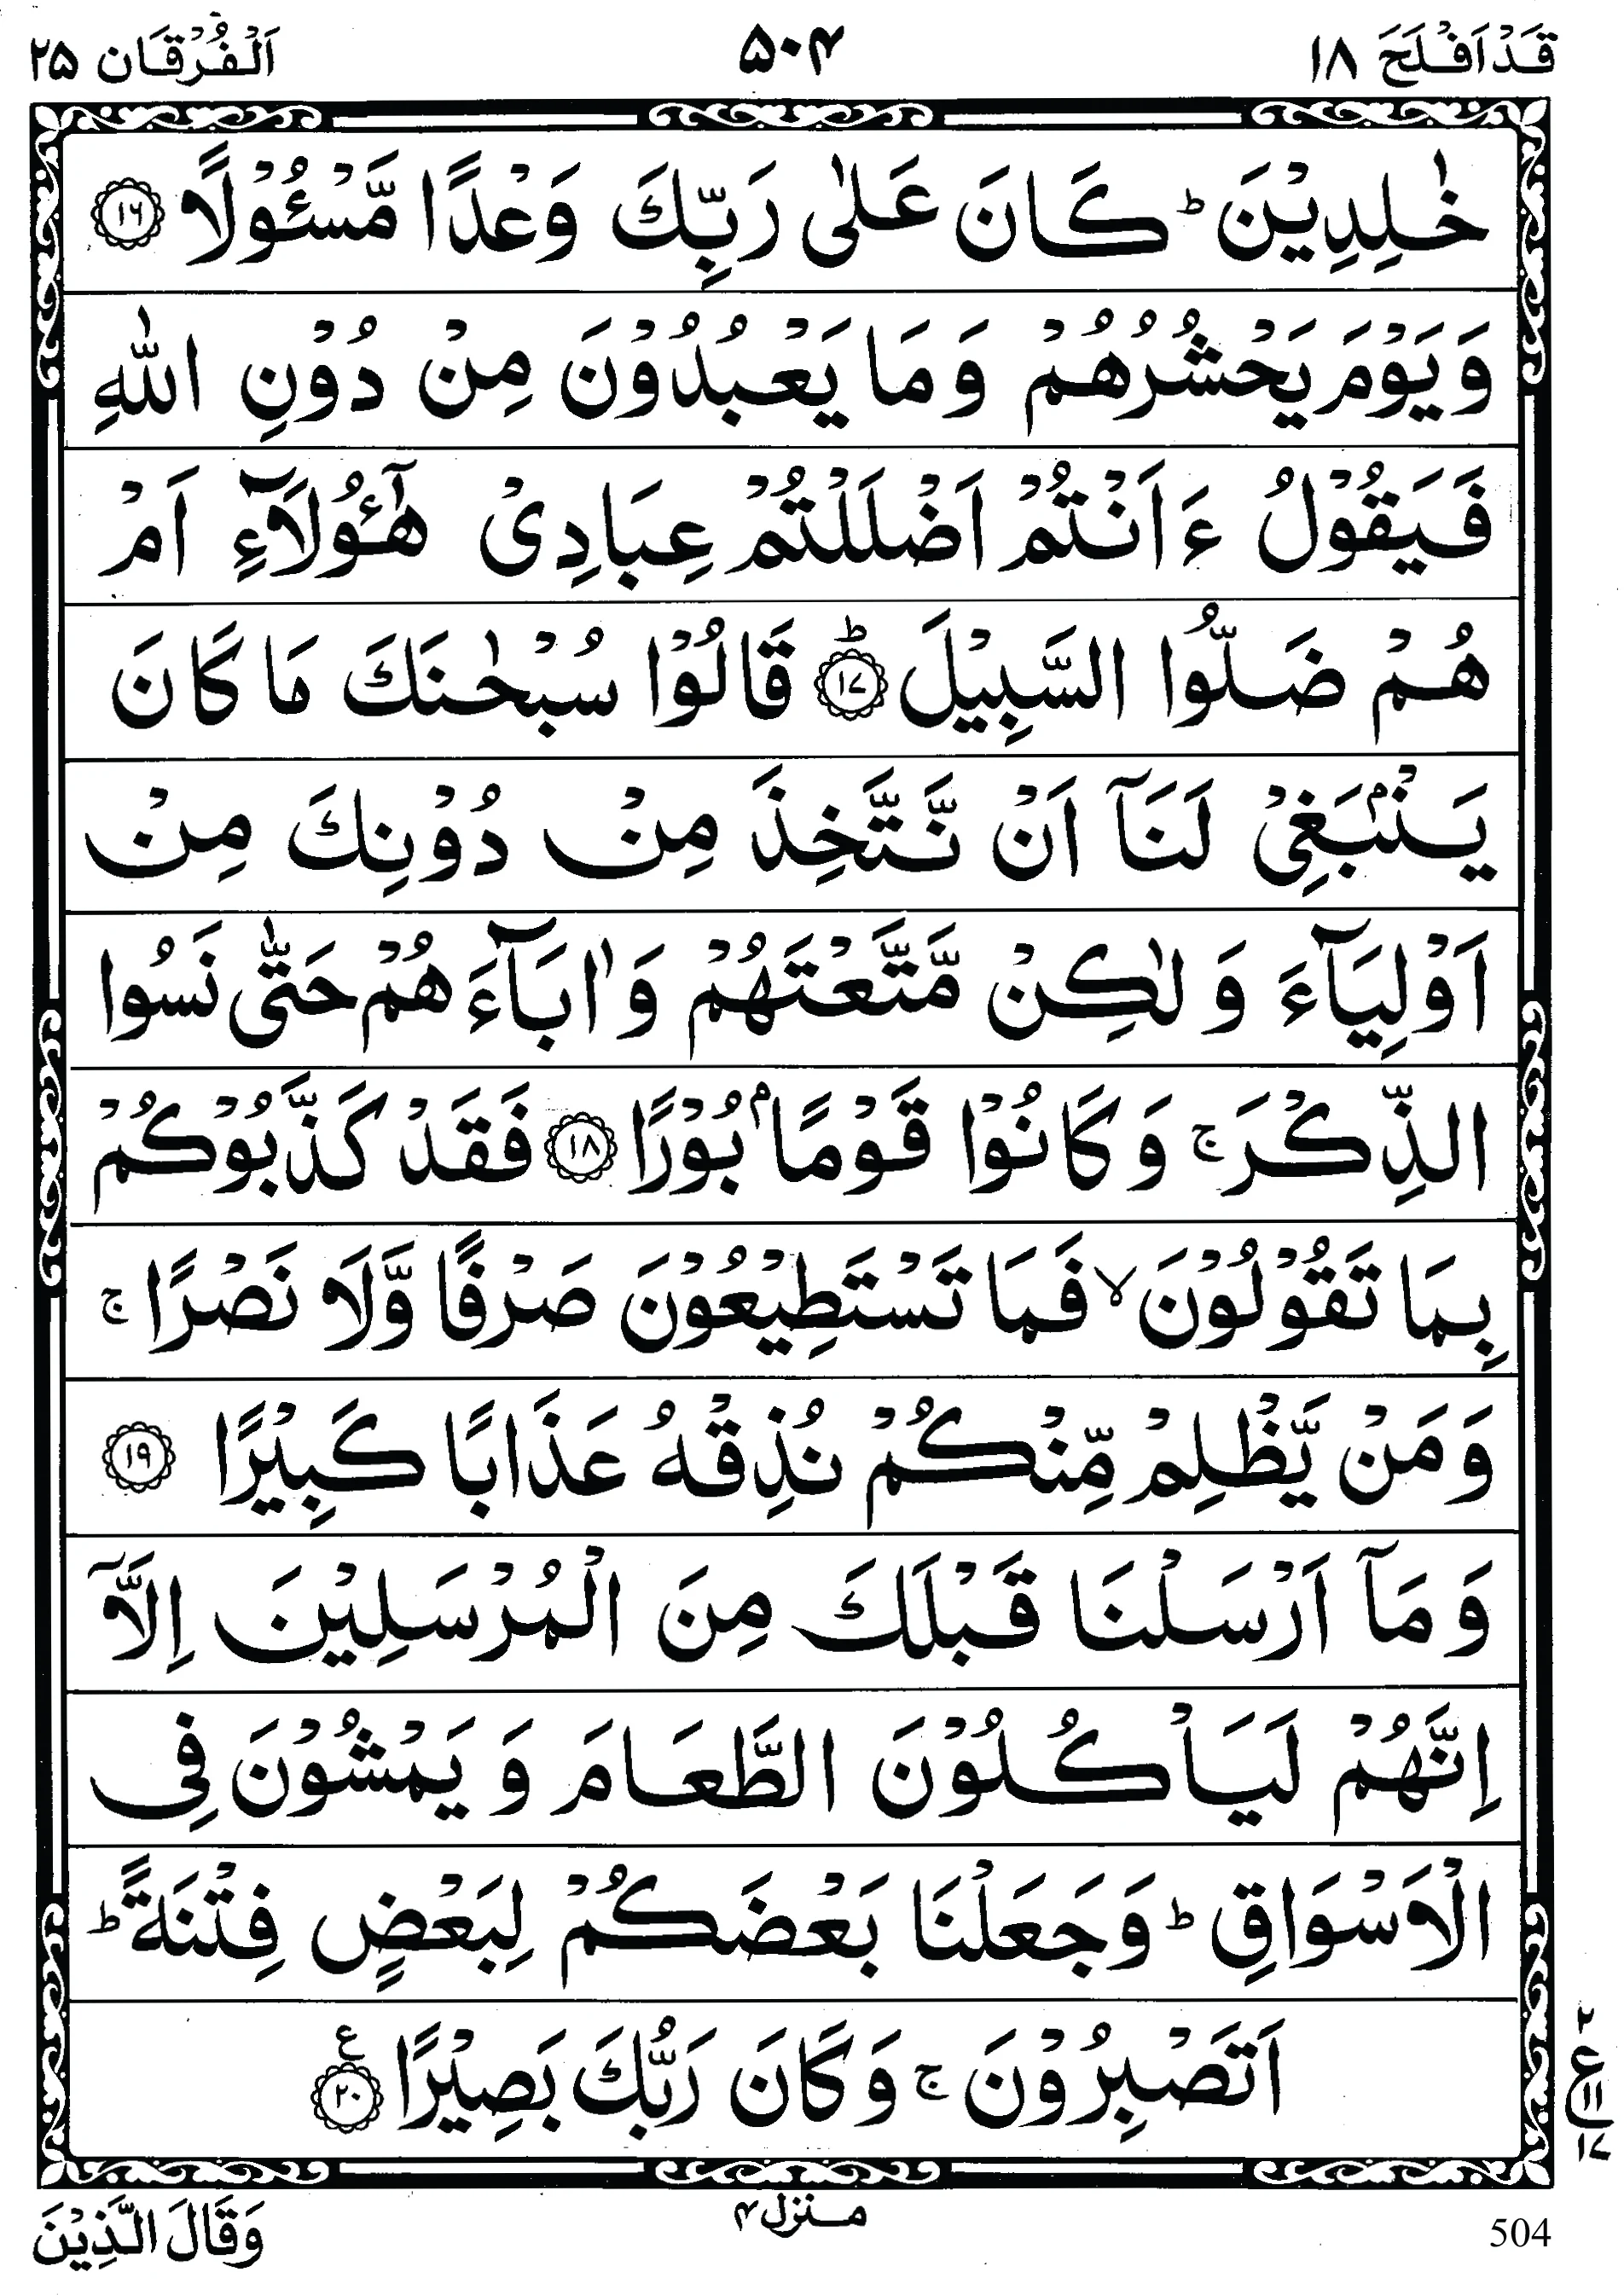 قَدْ اَفْلَحَ ١٨ ۵۰۴ اَلْفُرْقَان ٢٥
خٰلِدِيْنَ ؕ كَانَ عَلٰى رَبِّكَ وَعْدًا مَّسْـُٔوْلًا ۝١٦
وَيَوْمَ يَحْشُرُهُمْ وَمَا يَعْبُدُوْنَ مِنْ دُوْنِ اللّٰهِ
فَيَقُوْلُ ءَاَنْتُمْ اَضْلَلْتُمْ عِبَادِىْ هٰٓؤُلَآءِ اَمْ
هُمْ ضَلُّوا السَّبِيْلَ ؕ۝١٧ قَالُوْا سُبْحٰنَكَ مَا كَانَ
يَنْۢبَغِىْ لَنَآ اَنْ نَّتَّخِذَ مِنْ دُوْنِكَ مِنْ
اَوْلِيَآءَ وَلٰكِنْ مَّتَّعْتَهُمْ وَاٰبَآءَهُمْ حَتّٰى نَسُوا
الذِّكْرَ ۚ وَكَانُوْا قَوْمًاۢ بُوْرًا ۝١٨ فَقَدْ كَذَّبُوْكُمْ
بِمَا تَقُوْلُوْنَ ۙ فَمَا تَسْتَطِيْعُوْنَ صَرْفًا وَّلَا نَصْرًا ۚ
وَمَنْ يَّظْلِمْ مِّنْكُمْ نُذِقْهُ عَذَابًا كَبِيْرًا ۝١٩
وَمَآ اَرْسَلْنَا قَبْلَكَ مِنَ الْمُرْسَلِيْنَ اِلَّآ
اِنَّهُمْ لَيَاْكُلُوْنَ الطَّعَامَ وَيَمْشُوْنَ فِى
الْاَسْوَاقِ ؕ وَجَعَلْنَا بَعْضَكُمْ لِبَعْضٍ فِتْنَةً ؕ
اَتَصْبِرُوْنَ ۚ وَكَانَ رَبُّكَ بَصِيْرًا ۝٢٠ ع
منزل ۴
وَقَالَ الَّذِيْنَ
504